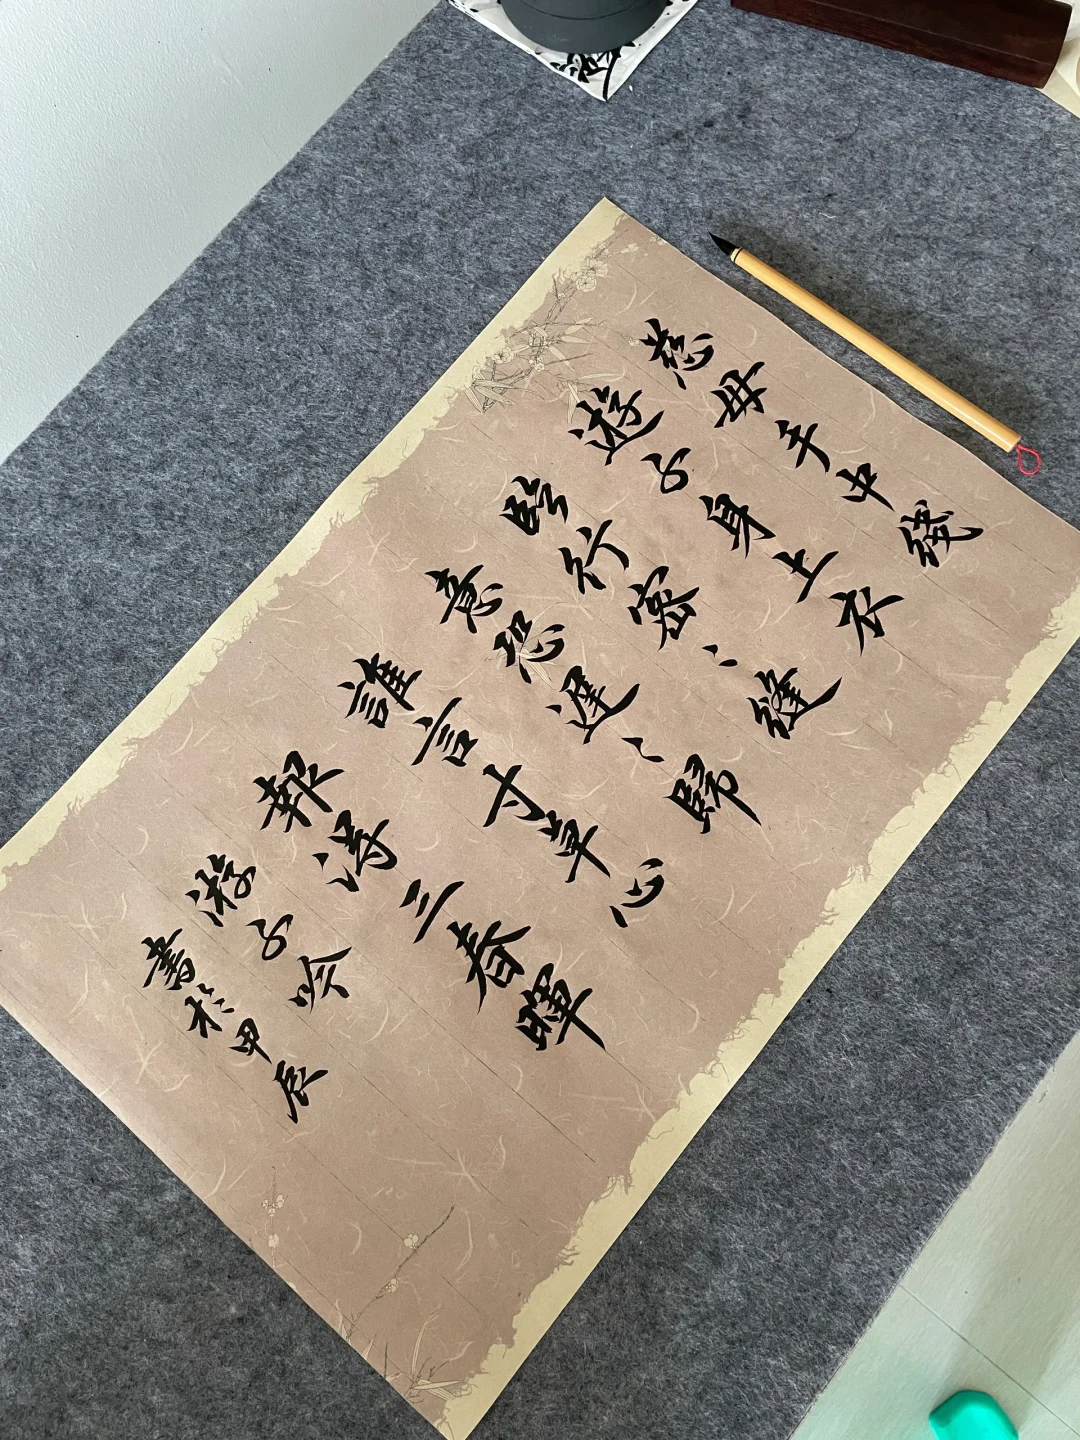 慈母手中线
遊子身上衣
臨行密、縫
意恐遲、歸
誰言寸草心
報得三春暉
游子吟
書於甲辰